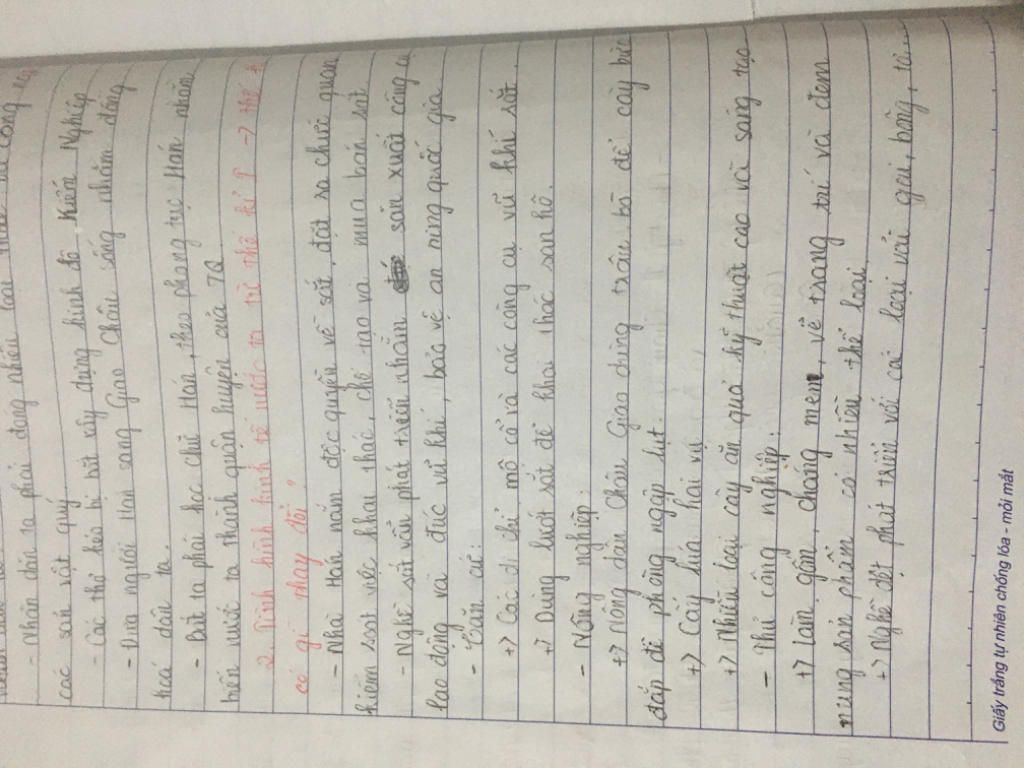 - Nhân dân ta phải đóng nhiều loại thuế
các sản vật quý.
- Các thợ khéo bị bắt xây dựng kinh đô Kiến Nghiệp
- Đưa người Hán sang Giao Châu sống nhằm đồng
hoá dân ta.
- Bắt ta phải học chữ Hán, theo phong tục Hán nhằm
biến nước ta thành quận huyện của TQ.
2. Tình hình kinh tế nước ta từ thế kỉ I -> thế
có gì thay đổi?
- Nhà Hán nắm độc quyền về sắt, đặt ra chức quan
kiểm soát việc khai thác, chế tạo và mua bán sắt
- Nghề sắt vẫn phát triển nhằm sản xuất công cụ
lao động và đúc vũ khí, bảo vệ an ning quốc gia.
- Căn cứ:
+> Các di chỉ, mộ cổ và các công cụ vũ khí sắt.
+> Dùng lưới sắt để khai thác san hô.
- Nông nghiệp:
+> Nông dân Châu Giao dùng trâu, bò để cày bừa
đắp đê phòng ngập lụt.
+> Cấy lúa hai vụ
+> Nhiều loại cây ăn quả kỹ thuật cao và sáng tạo
- Thủ công nghiệp:
+> Làm gốm, chang mem, vẽ trang trí và đem
nung sản phẩm có nhiều thể loại.
+> Nghề dệt phát triển với các loại vải gai, bông, tơ...
Giấy trắng tự nhiên chống lóa - mỏi mắt